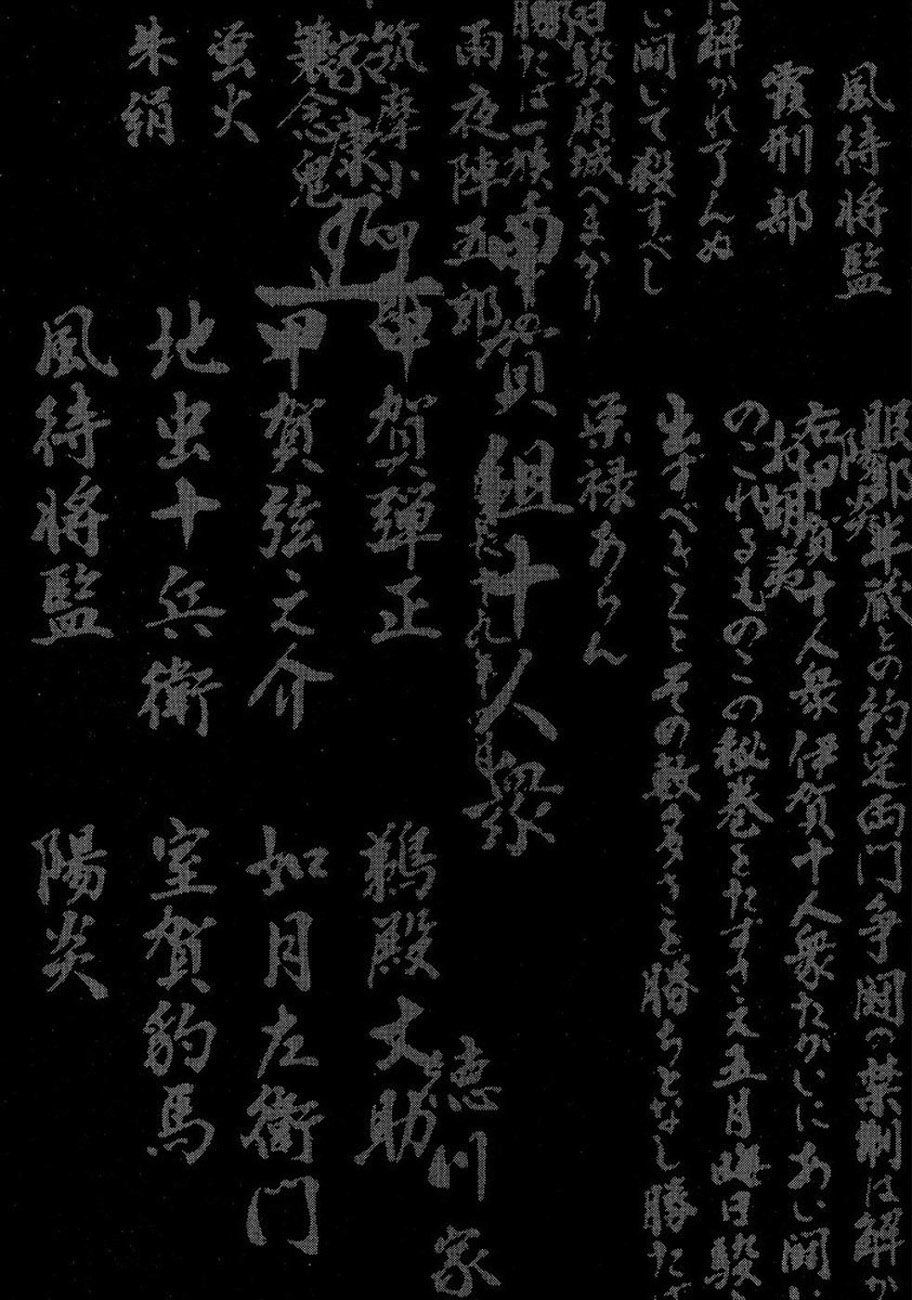 風待将監
霞刑部
は解かれ了んぬ
い闘いて殺すべし
駿府城へまかり
勝たば一族
雨夜陣五郎
筑摩小
簑念鬼
蛍火
朱絹
服部半蔵との約定両門争闘の禁制は解か
陽炎
右甲賀十人衆伊賀十人衆たがいにあい闘い
お胡夷
のこれるものこの秘巻をたずさえ五月晦日駿
生ずべきことその数多きを勝ちとなし勝たば
栄禄あらん
甲賀組十人衆
甲賀弾正
甲賀弦之介
地虫十兵衛
風待将監
鵜殿丈助
如月左衛門
室賀豹馬
陽炎
徳川家
家康